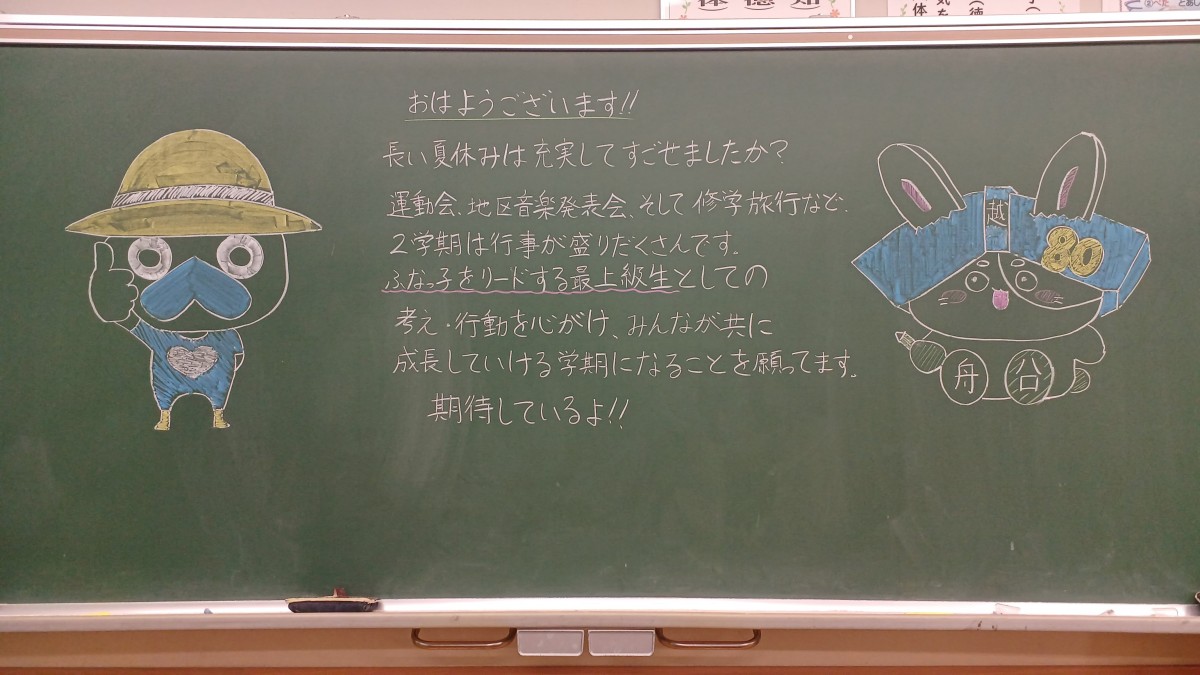 おはようございます!!
長い夏休みは充実してすごせましたか?
運動会、地区音楽発表会、そして修学旅行など、
2学期は行事が盛りだくさんです。
ふなっ子をリードする最上級生としての
考え・行動を心がけ、みんなが共に
成長していける学期になることを願ってます。
期待しているよ!!
越
80
舟